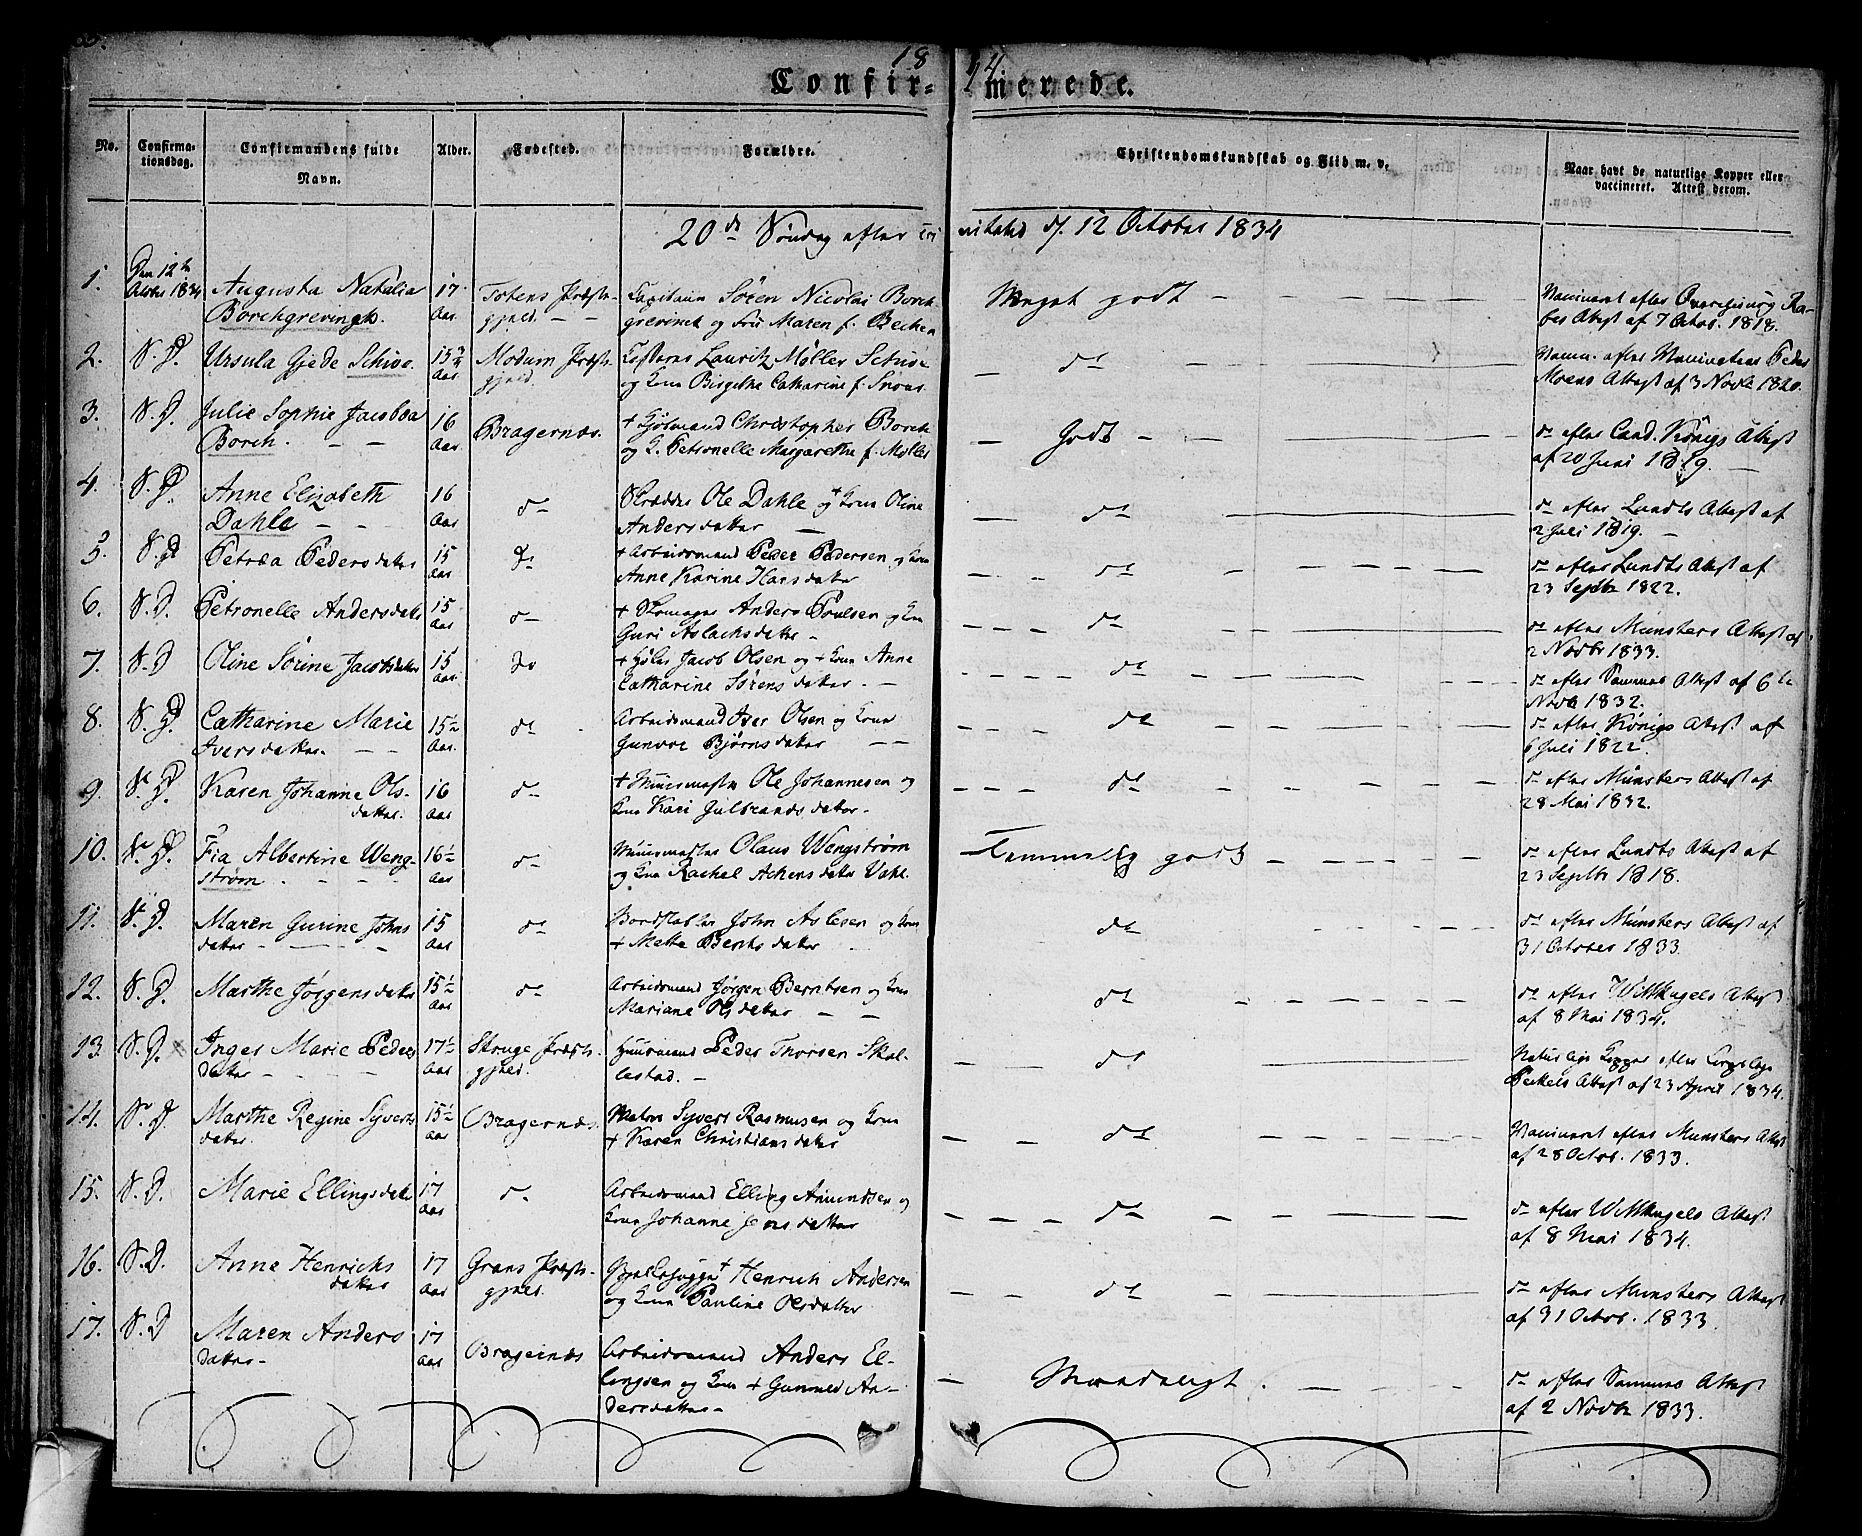 18 34
Confir- merede.
No.
Confirma-
tionsdag.
Confirmandens fulde
Navn.
Alder.
Fødested.
Forældre.
Christendomskundskab og Flid m. v.
Naar havt de naturlige Kopper eller
vaccineret. Attest derom.
20de Søndag efter Trinitatis d. 12 October 1834
1. Den 12te Augusta Natalia 17 Totens Præste- Capitain Søren Nicolai Borch- Meget godt Vaccineret efter
Octbr 1834 Borchgrevingk. Aar gjeld. grevinck og Fru Maren f. Becken Attest af 7 Octbr. 1818.
2. S. D. Ursula Gjede Schive 15 3/4 Modum Præste- Lauritz Møller Schive do Vacc. efter Vaccinateur Peder
Aar gjeld. og Kone Birgithe Catharine f. Attest af 3 Novbr 1820.
3. S. D. Julie Sophie Jacobea 16 Bragernæs. + Kjøbmand Christopher Borch Godt do efter Cand. Königs Attest
Borch. Aar. og K. Petronelle Margarethe f. Møller af 20 Juni 1819.
4. S. D. Anne Elizabeth 16 do Skrædder Ole Dahle og + Kone Oline do do efter Lundts Attest af
Dahle Aar Andersdatter 2 Juli 1819.
5. S. D. Petrea Pedersdatter 15 do + Arbeidsmand Peder Pedersen og Kone do do efter Lundts Attest af
Aar Anne Karine Hansdatter 23 Septbr 1822.
6. S. D. Petronelle Andersdatter 15 do + Skomager Anders Poulsen og Kone do do efter Münsters Attest af
Aar Guri Aslachsdatter 2 Novbr 1833.
7. S. D. Oline Sørine Jacobsdatter 15 do + Jacob Olsen og + Kone Anne do do efter Attest af 6te
Aar. Catharine Sørensdatter. Novbr 1832.
8. S. D. Catharine Marie 15 1/2 do Arbeidsmand Iver Olsen og Kone do do efter Königs Attest af
Iversdatter. Aar. Gunvor Bjørnsdatter 6 Juli 1822.
9. S. D. Karen Johanne Ols- 16 do + Muurmester Ole Johannesen og do do efter Münsters Attest af
datter. Aar Kone Kari Gulbrandsdatter. 28 Mai 1832.
10. S. D. Fia Albertine Weng- 16 1/2 do Muurmester Olaus Wengstrøm Temmelig godt do efter Lundts Attest af
strøm. Aar og Kone Rachel 23 Septbr 1818.
11. S. D. Maren Gurine Johns 15 do John Aslesen og Kone do do efter Münsters Attest af
datter Aar + Mette Berthsdatter 31 October 1833.
12. S. D. Marthe Jørgensdatter 15 1/2 do Arbeidsmand Jørgen Berntsen og Kone do do efter Attest
Aar Mariane Olsdatter af 8 Mai 1834.
13. S. D. Inger Marie Peders 17 1/2 Præste- Huusmand Peder Thorsen Skal- do Naturlige Kopper efter
datter Aar gjeld. lestad. Attest af 23 April 1834.
14. S. D. Marthe Regine Syverts 15 1/2 Bragernæs. Syvert Rasmusen og Kone do Vaccineret efter Münsters Attest
datter. Aar + Karen Christiansdatter af 28 Octbr. 1833.
15. S. D. Marie Ellingsdatter 17 do Arbeidsmand Elling Amundsen og do do efter Attest
Aar Kone Johanne Jensdatter af 8 Mai 1834.
16. S. D. Anne Henrichs 17 Grans Præste- + Henrich Andersen do do efter Münsters Attest
datter Aar gjeld. og Kone Pauline Olsdatter af 31 Octbr. 1833.
17. S. D Maren Anders 17 Bragernæs Arbeidsmand Anders El- Maadeligt. do efter Attest
datter. Aar lingsen og Kone + Gunnild An- af 2 Novbr 1833.
dersdatter.